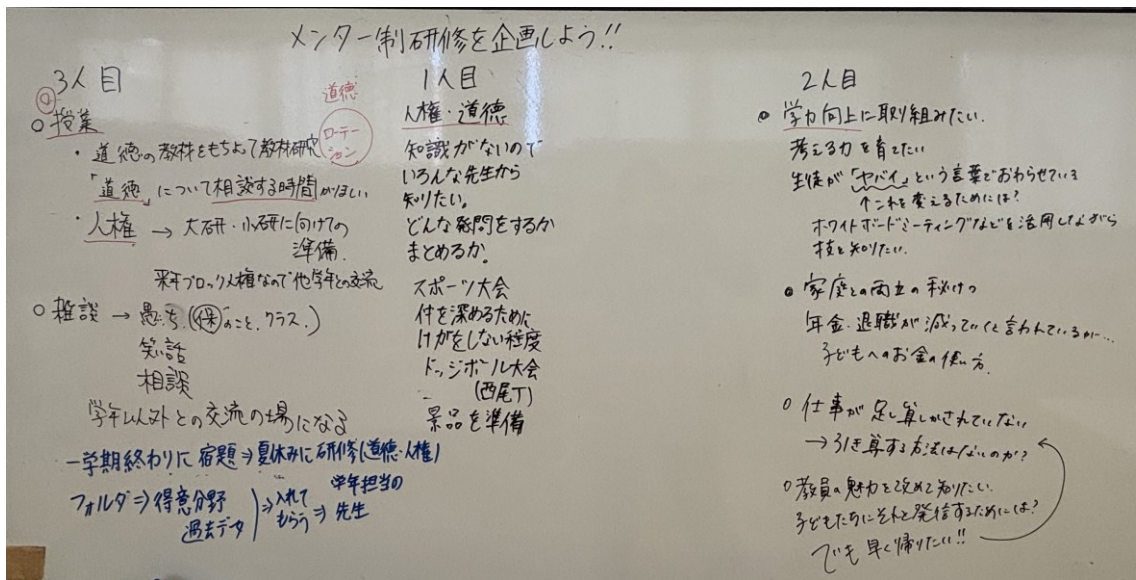 メンター制研修を企画しよう!!
3人目
②
○授業
道徳
ローテーション
・道徳の教材をもちよって教材研究
「道徳」について相談する時間がほしい
・人権 → 大研・小研に向けての
準備.
来年ブロック人権なので他学年との交流
○雑談 → 愚ち.(保のこと.クラス.)
笑い話
相談
学年以外との交流の場になる
一学期終わりに宿題⇒夏休みに研修(道徳・人権)
フォルダ⇒得意分野
過去データ
⇒入れて
もらう⇒
学年担当の
先生
1人目
人権・道徳
知識がないので
いろんな先生から
知りたい。
どんな発問をするか
まとめるか.
スポーツ大会
仲を深めるために
けがをしない程度
ドッジボール大会
(西尾T)
景品を準備
2人目
●学力向上に取り組みたい.
考える力を育てたい
生徒が「ヤバイ」という言葉でおわらせている
↑これを変えるためには?
ホワイトボードミーティングなどを活用しながら
技を知りたい.
●家庭との両立の秘けつ
年金・退職が減っていくと言われているが…
子どもへのお金の使い方.
○仕事が足し算しかされていない
→引き算する方法はないのか?
○教員の魅力を改めて知りたい.
子どもたちにそれを発信するためには?
でも早く帰りたい!!